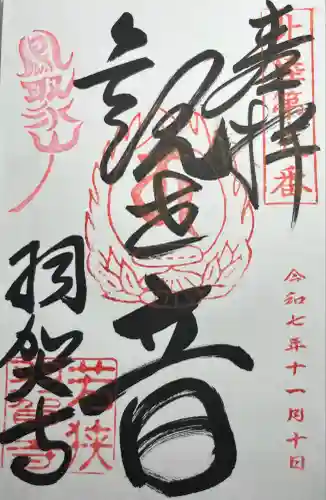 奉拝
北陸第三番
令和七年十一月十日
観世音
鳳聚山
羽賀寺
若狭
羽賀寺